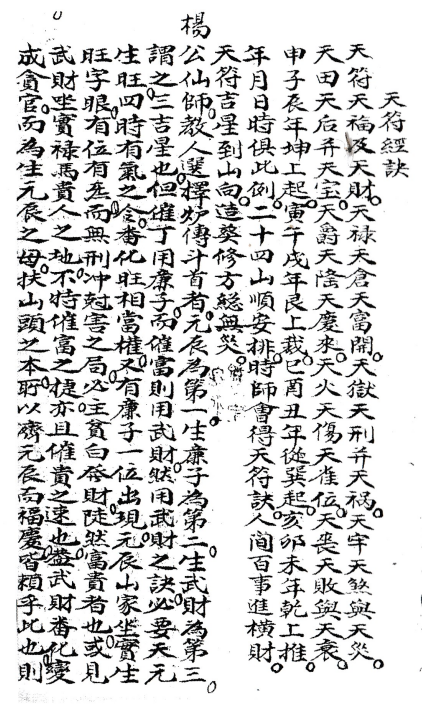 天符經訣
天符天福及天財天祿天倉天富開天獄天刑并天禍天牢天煞與天災
天田天后并天宝天爵天隆天慶來天火天傷天雀位天喪天敗與天衰
申子辰年坤上起寅午戌年艮上裁巳酉丑年從巽起亥卯未年乾上推
年月日時俱此例二十四山順安排時師會得天符訣人間百事進橫財
天符吉星到山向造葵修方総無災
楊公仙師教人選擇妙傳斗首者元辰為第一生廉子為第二生武財為第三
謂之三吉星也但催丁用廉子而催富則用武財然用武財之訣必要天元
生旺四時有氣之令番化旺相當權又有廉子一位出現元辰山家坐實生
旺字眼有位有炁而無刑冲尅害之局必主貧白癹財陡然富貴者也或見
武財坐實祿馬貴人之地不特催富之捷亦且催貴之速也盖武財番化變
成貪官而為生元辰之母扶山頭之本所以癠元辰而福慶皆賴乎此也則